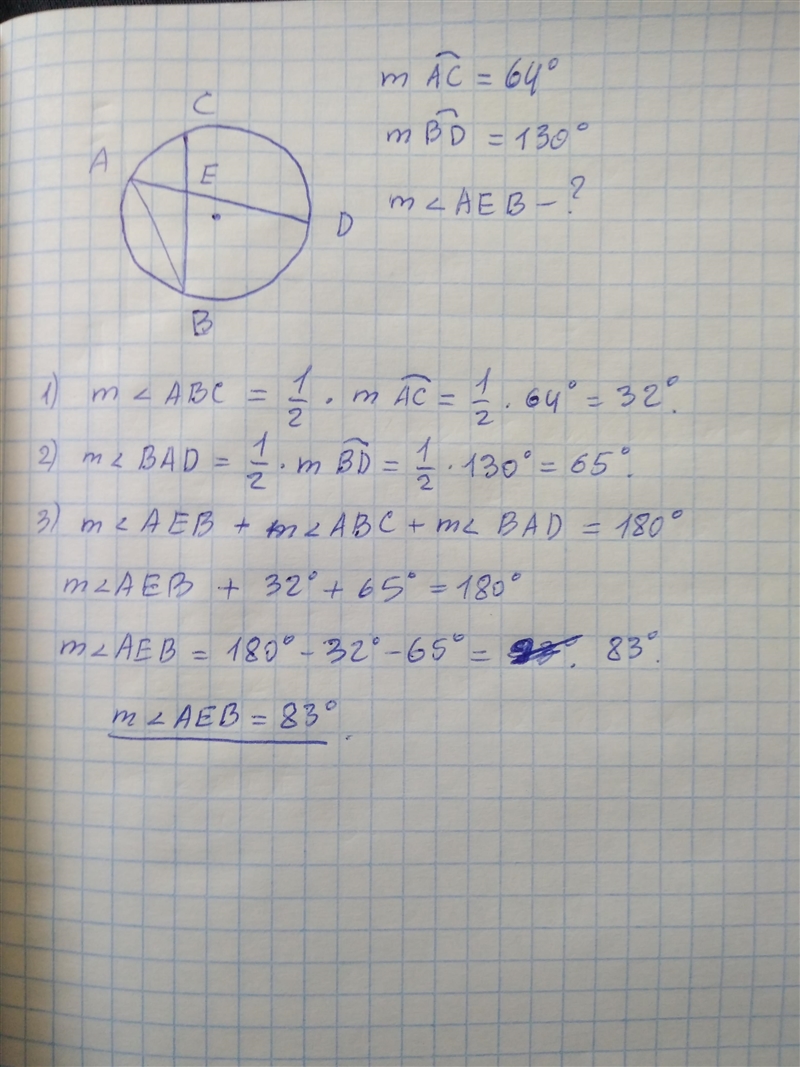 m AC = 64°
m BD = 130°
m < AEB - ?
C
A
E
D
B
1) m < ABC = 1/2 · m AC = 1/2 · 64° = 32°.
2) m < BAD = 1/2 · m BD = 1/2 · 130° = 65°.
3) m < AEB + m < ABC + m < BAD = 180°
m < AEB + 32° + 65° = 180°
m < AEB = 180° - 32° - 65° = 83°.
m < AEB = 83°.